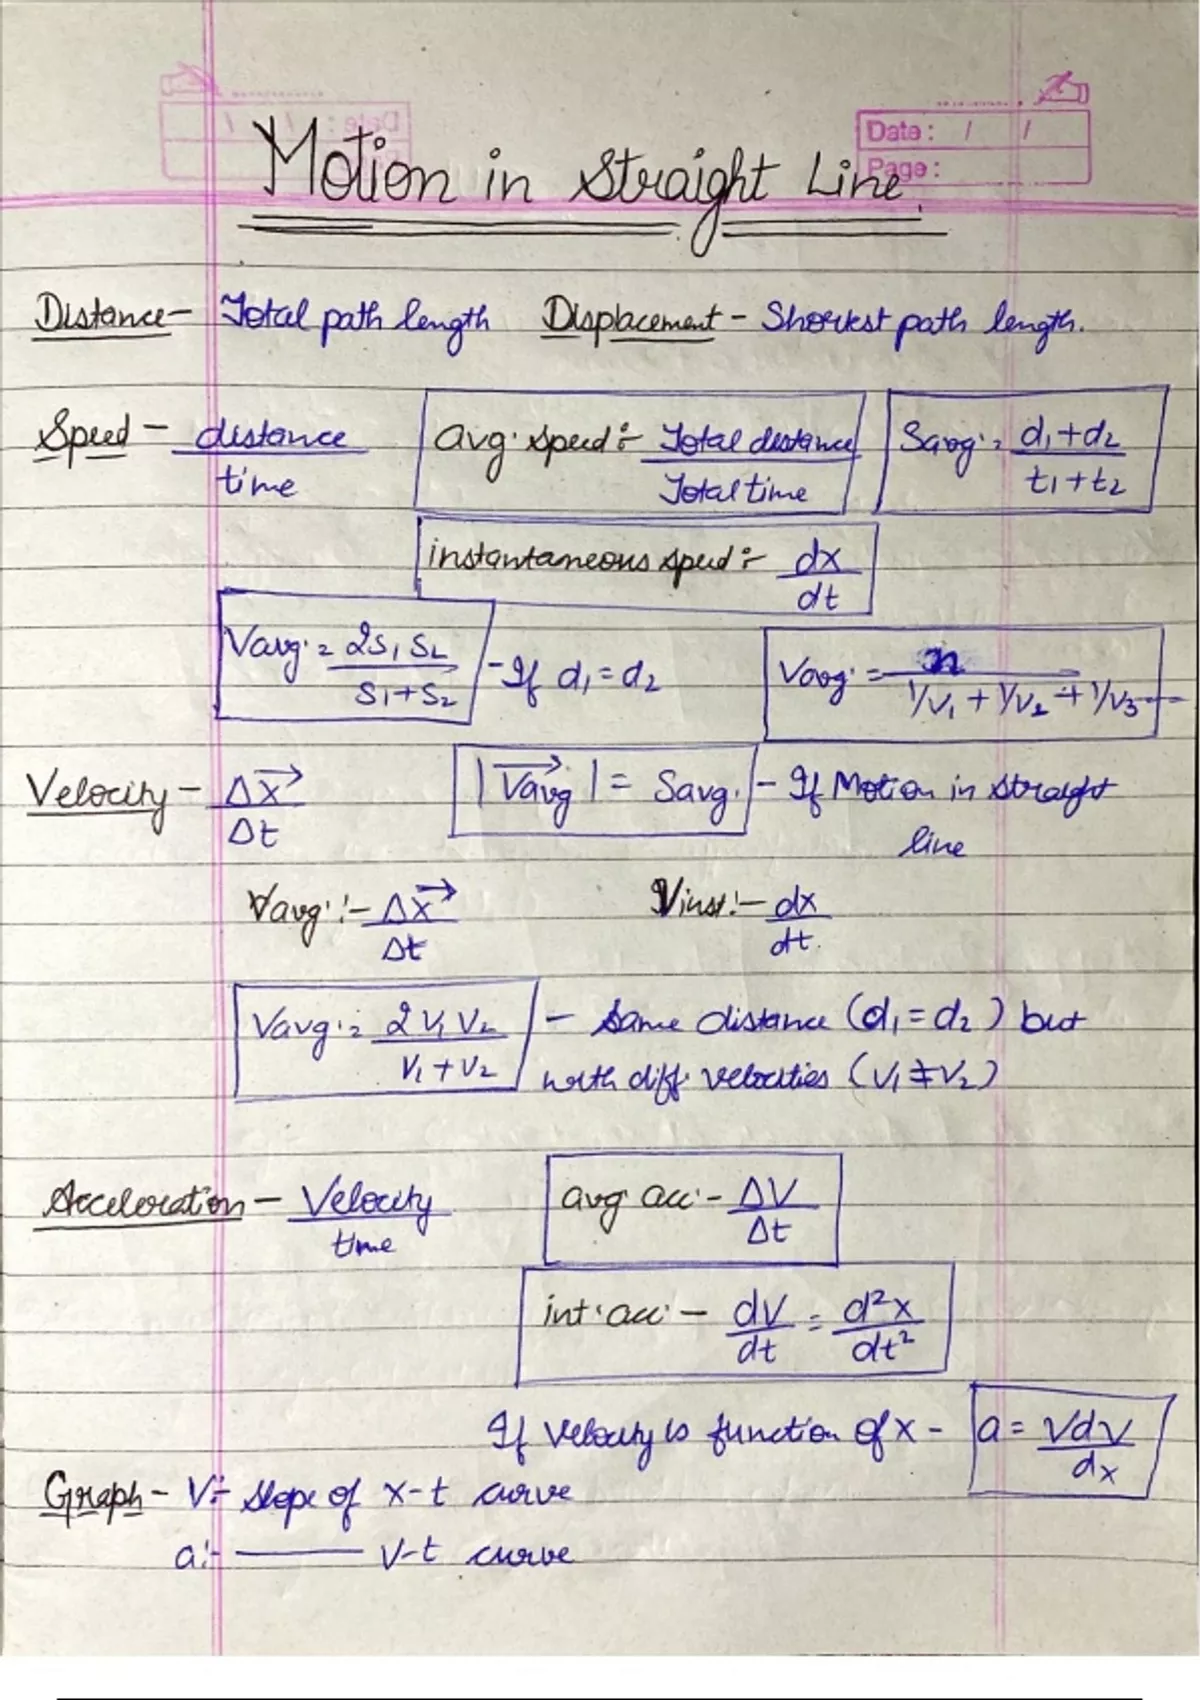 Date: / /
Page:
Motion in Straight Line.
Distance- Total path length Displacement - Shortest path length.
Speed - distance/time
avg. speed :- Total distance/Total time
Savg. = d₁+d₂/t₁+t₂
instantaneous speed :- dx/dt
Vavg. = 2S₁S₂/S₁+S₂ - If d₁=d₂
Vavg. = n/1/V₁ + 1/V₂ + 1/V₃--
Velocity - Δx→/Δt
|Vavg→| = Savg. - If Motion in straight
line
Vavg. :- Δx→/Δt
Vinst. :- dx/dt.
Vavg. = 2V₁V₂/V₁+V₂ - Same distance (d₁=d₂) but
with diff. velocities (V₁≠V₂)
Acceleration - Velocity/time
avg. acc. - ΔV/Δt
int. acc. - dV/dt = d²x/dt²
If Velocity is function of x - a = VdV/dx
Graph - V:- Slope of x-t curve
a:- ——— V-t curve